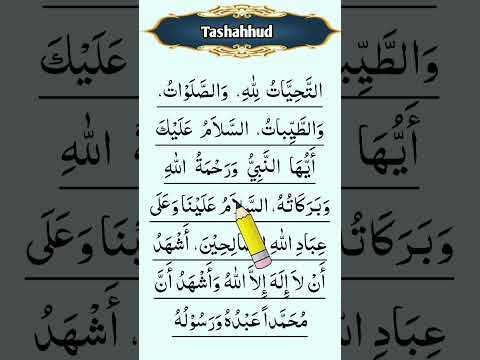 Tashahhud
التَّحِيَّاتُ لِلّٰهِ، وَالصَّلَوٰاتُ،
وَالطَّيِّبَاتُ، السَّلاَمُ عَلَيْكَ
أَيُّهَا النَّبِيُّ وَرَحْمَةُ اللهِ
وَبَرَكَاتُهُ، السَّلاَمُ عَلَيْنَا وَعَلَى
عِبَادِ اللهِ الصَّالِحِيْنَ، أَشْهَدُ
أَنْ لاَ إِلَهَ إِلاَّ اللهُ وَأَشْهَدُ أَنَّ
مُحَمَّداً عَبْدُهُ وَرَسُوْلُهُ